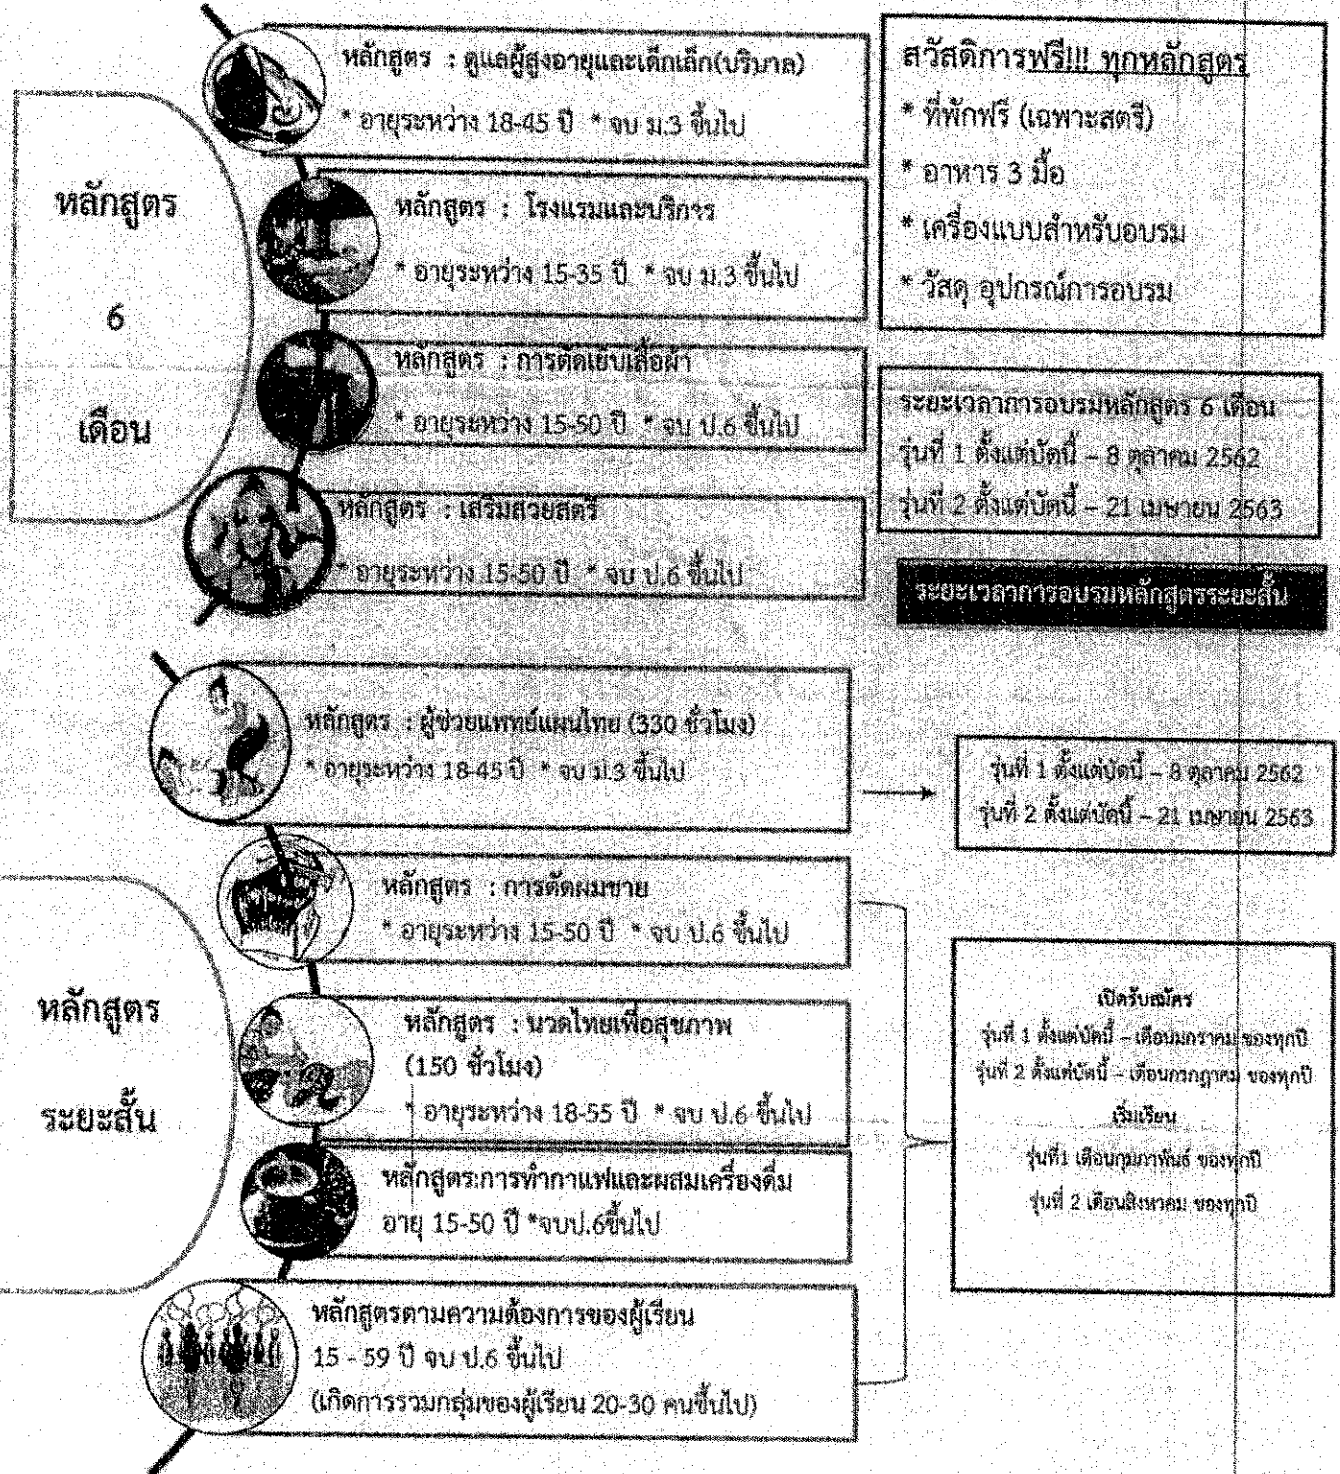 หลักสูตร
6
เดือน
หลักสูตร : ดูแลผู้สูงอายุและเด็กเล็ก(บริบาล)
* อายุระหว่าง 18-45 ปี * จบ ม.3 ขึ้นไป
หลักสูตร : โรงแรมและบริการ
* อายุระหว่าง 15-35 ปี * จบ ม.3 ขึ้นไป
หลักสูตร : การตัดเย็บเสื้อผ้า
* อายุระหว่าง 15-50 ปี * จบ ป.6 ขึ้นไป
หลักสูตร : เสริมสวยสตรี
* อายุระหว่าง 15-50 ปี * จบ ป.6 ขึ้นไป
สวัสดิการฟรี!!! ทุกหลักสูตร
* ที่พักฟรี (เฉพาะสตรี)
* อาหาร 3 มื้อ
* เครื่องแบบสำหรับอบรม
* วัสดุ อุปกรณ์การอบรม
ระยะเวลาการอบรมหลักสูตร 6 เดือน
รุ่นที่ 1 ตั้งแต่บัดนี้ – 8 ตุลาคม 2562
รุ่นที่ 2 ตั้งแต่บัดนี้ – 21 เมษายน 2563
ระยะเวลาการอบรมหลักสูตรระยะสั้น
หลักสูตร
ระยะสั้น
หลักสูตร : ผู้ช่วยแพทย์แผนไทย (330 ชั่วโมง)
* อายุระหว่าง 18-45 ปี * จบ ม.3 ขึ้นไป
รุ่นที่ 1 ตั้งแต่บัดนี้ – 8 ตุลาคม 2562
รุ่นที่ 2 ตั้งแต่บัดนี้ – 21 เมษายน 2563
หลักสูตร : การตัดผมชาย
* อายุระหว่าง 15-50 ปี * จบ ป.6 ขึ้นไป
หลักสูตร : นวดไทยเพื่อสุขภาพ
(150 ชั่วโมง)
* อายุระหว่าง 18-55 ปี * จบ ป.6 ขึ้นไป
หลักสูตร:การทำกาแฟและผสมเครื่องดื่ม
อายุ 15-50 ปี *จบป.6ขึ้นไป
หลักสูตรตามความต้องการของผู้เรียน
15 - 59 ปี จบ ป.6 ขึ้นไป
(เกิดการรวมกลุ่มของผู้เรียน 20-30 คนขึ้นไป)
เปิดรับสมัคร
รุ่นที่ 1 ตั้งแต่บัดนี้ – เดือนมกราคม ของทุกปี
รุ่นที่ 2 ตั้งแต่บัดนี้ – เดือนกรกฎาคม ของทุกปี
เริ่มเรียน
รุ่นที่1 เดือนกุมภาพันธ์ ของทุกปี
รุ่นที่ 2 เดือนสิงหาคม ของทุกปี